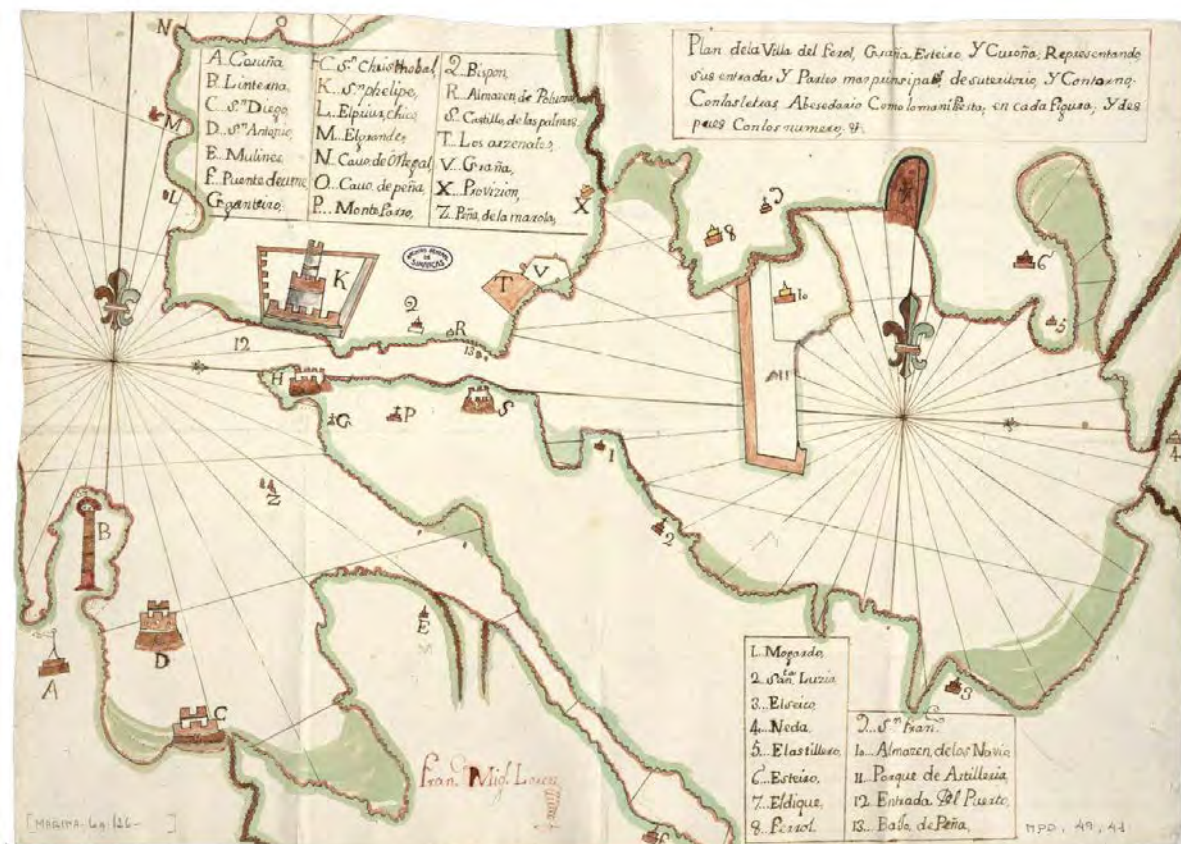 Plan de la Villa del Ferol, Graña, Esteiro Y Curoña; Representando
sus entradas Y Partes mas prinsipas de suteritorio, Y Contorno.
Con las letras Abesedario Como lo manifiesta, en cada figura, Y des
pues Con los numero. &.
A. Coruña
B. Linterna,
C. Sn. Diego,
D. Sn. Antonio,
E. Mulines
F. Puente deume,
G. ganteiro,
C. Sn. Christhobal,
K. Sn. phelipe,
L. El priur, chico
M. El grande,
N. Cauo. de Ortegal,
O. Cauo. de peña,
P. Monte Farro,
Q. Bispon,
R. Almazen, de Polura
S. Castillo, de las palmas,
T. Los arzenales,
V. Graña,
X. Provizion,
Z. Peña, de la marola,
N
O
M
L
K
Q
R
T
V
X
8
9
10
11
6
5
4
12
13
H
G
P
S
1
2
3
Z
B
A
D
C
E
F
ARCHIVO GENERAL
DE
SIMANCAS
1.. Mogardo,
2.. Santa. Luzia
3.. El seixo,
4.. Neda.
5.. El astillero,
6.. Esteiro,
7.. El dique,
8.. Ferrol.
9.. Sn. Franco.
10.. Almazen, de los Navio
11.. Parque de Artilleria
12 Entrada Del Puerto,
13.. Baxo. de Peña,
Franco. Migl.
[MARINA. Lg. 126- ]
MPD, 49, 41